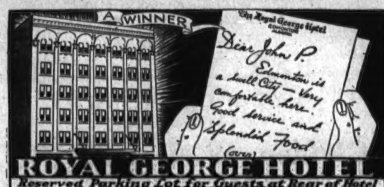 A WINNER
The Royal George Hotel
EDMONTON
ALBERTA
Dear John P.
Edmonton is
a swell City - Very
comfortable here.
Good service and
Splendid Food
(over)
ROYAL GEORGE HOTEL
Reserved Parking Lot for Guests at Rear of Hotel